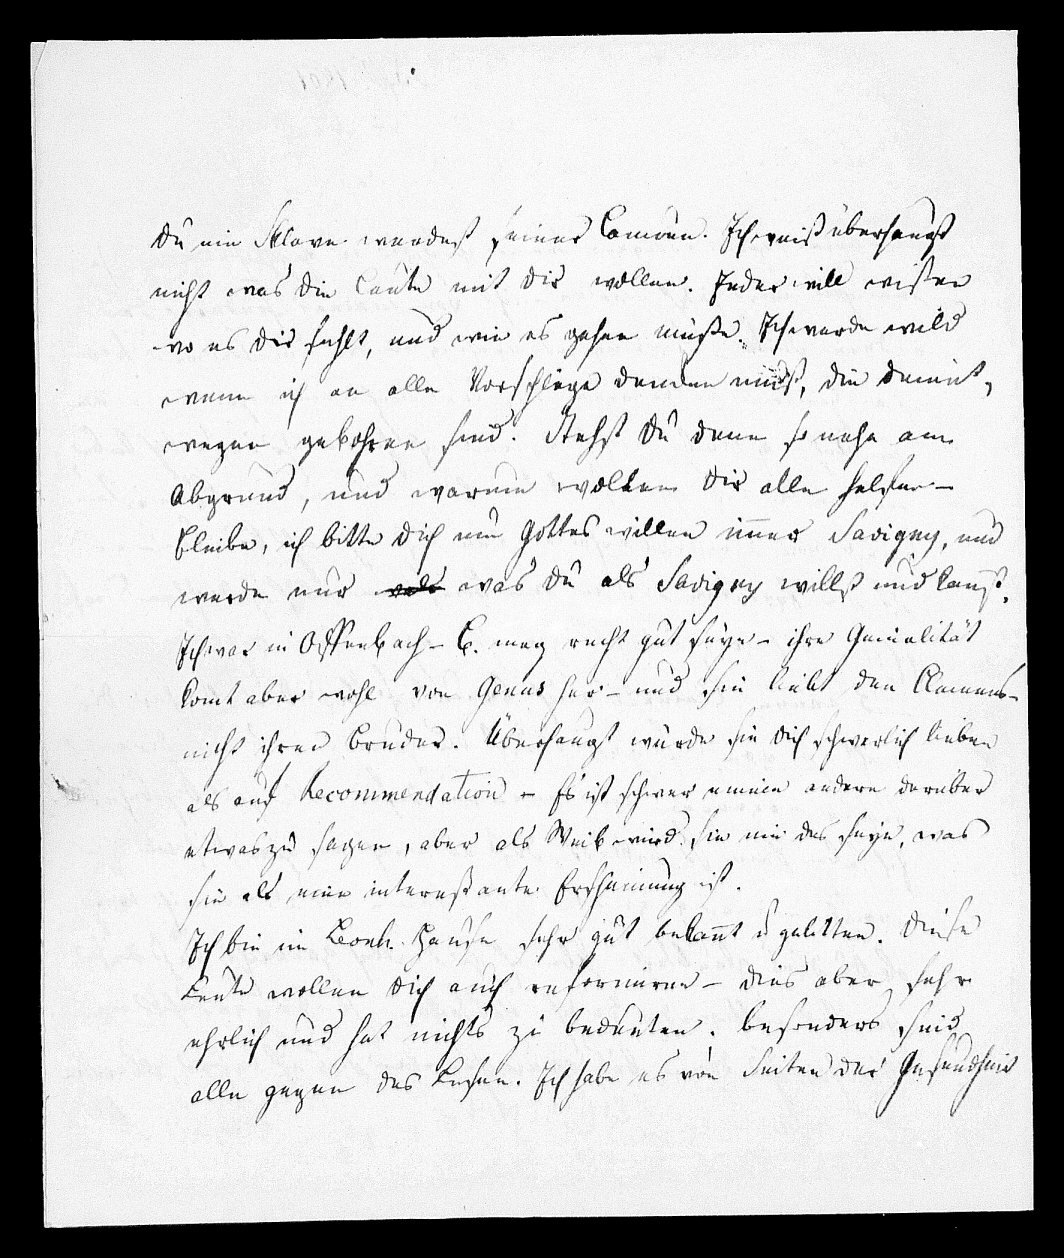 Du ein Sklave werdest seiner Launen. Ich weiß überhaupt
nicht was die Leute mit dir wollen. Jeder will wißen
wo es dir fehlt, und wie es gehen müße. Ich werde wild
wenn ich an alle Vorschläge dencken muß, die deinet,
wegen gebohren sind. Stehst Du denn so nahe am
Abgrund, und warum wollen dir alle helfen –
bleibe, ich bitte dich um Gottes willen immer Savigny, und
werde nur was du als Savigny willst und kannst.
Ich war in Offenbach – B. mag recht gut seyn – ihre Genialität
komt aber wohl von Genus her – und sie liebt den Clemens –
nicht ihren Bruder. Überhaupt würde sie dich schwerlich lieben
als auf Recommendation – Es ist schwer einem andern darüber
etwas zu sagen, aber als Weib wird sie nie das seyn, was
sie als eine interessante Erscheinung ist.
Ich bin im Leonh. Hause sehr gut bekannt u gelitten. Diese
Leute wollen dich auch reformiren – dies aber sehr
ehrlich und hat nichts zu bedeuten. besonders sind
alle gegen das Lesen. Ich habe es von Seiten der Gesundheit